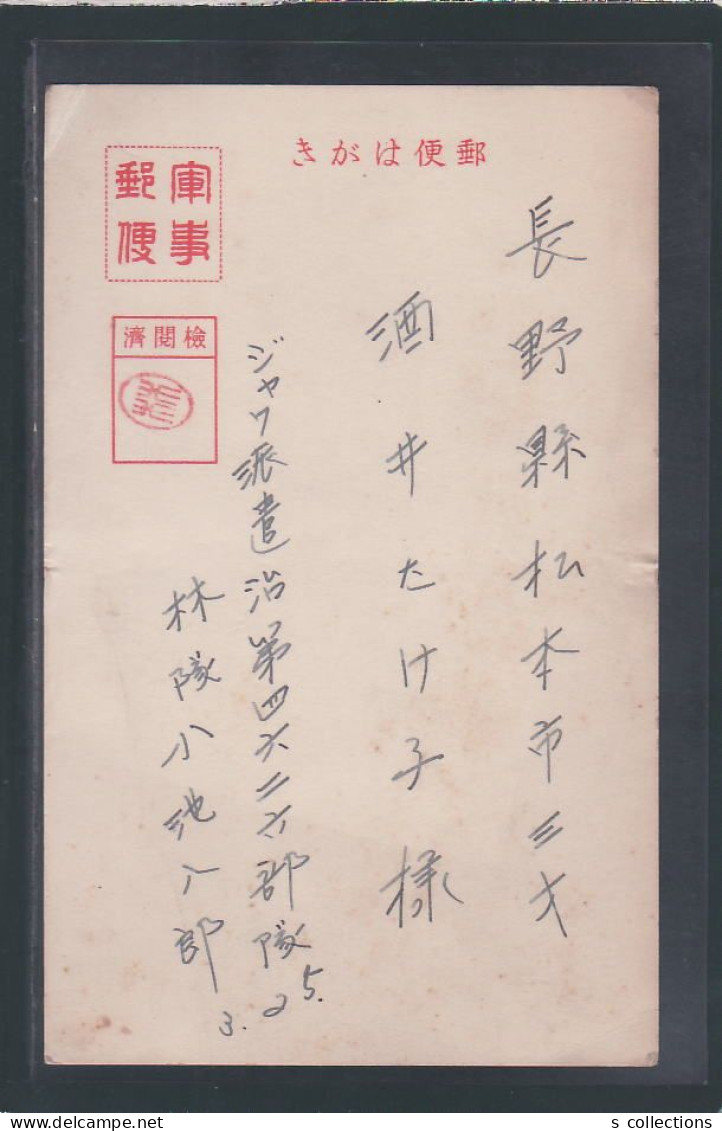 郵便はがき
軍事
郵便
検閲済
長野縣松本市三才
酒井たけ子様
ジャワ派遣治第四六二六部隊
林隊小池八郎
3.25.
s collections